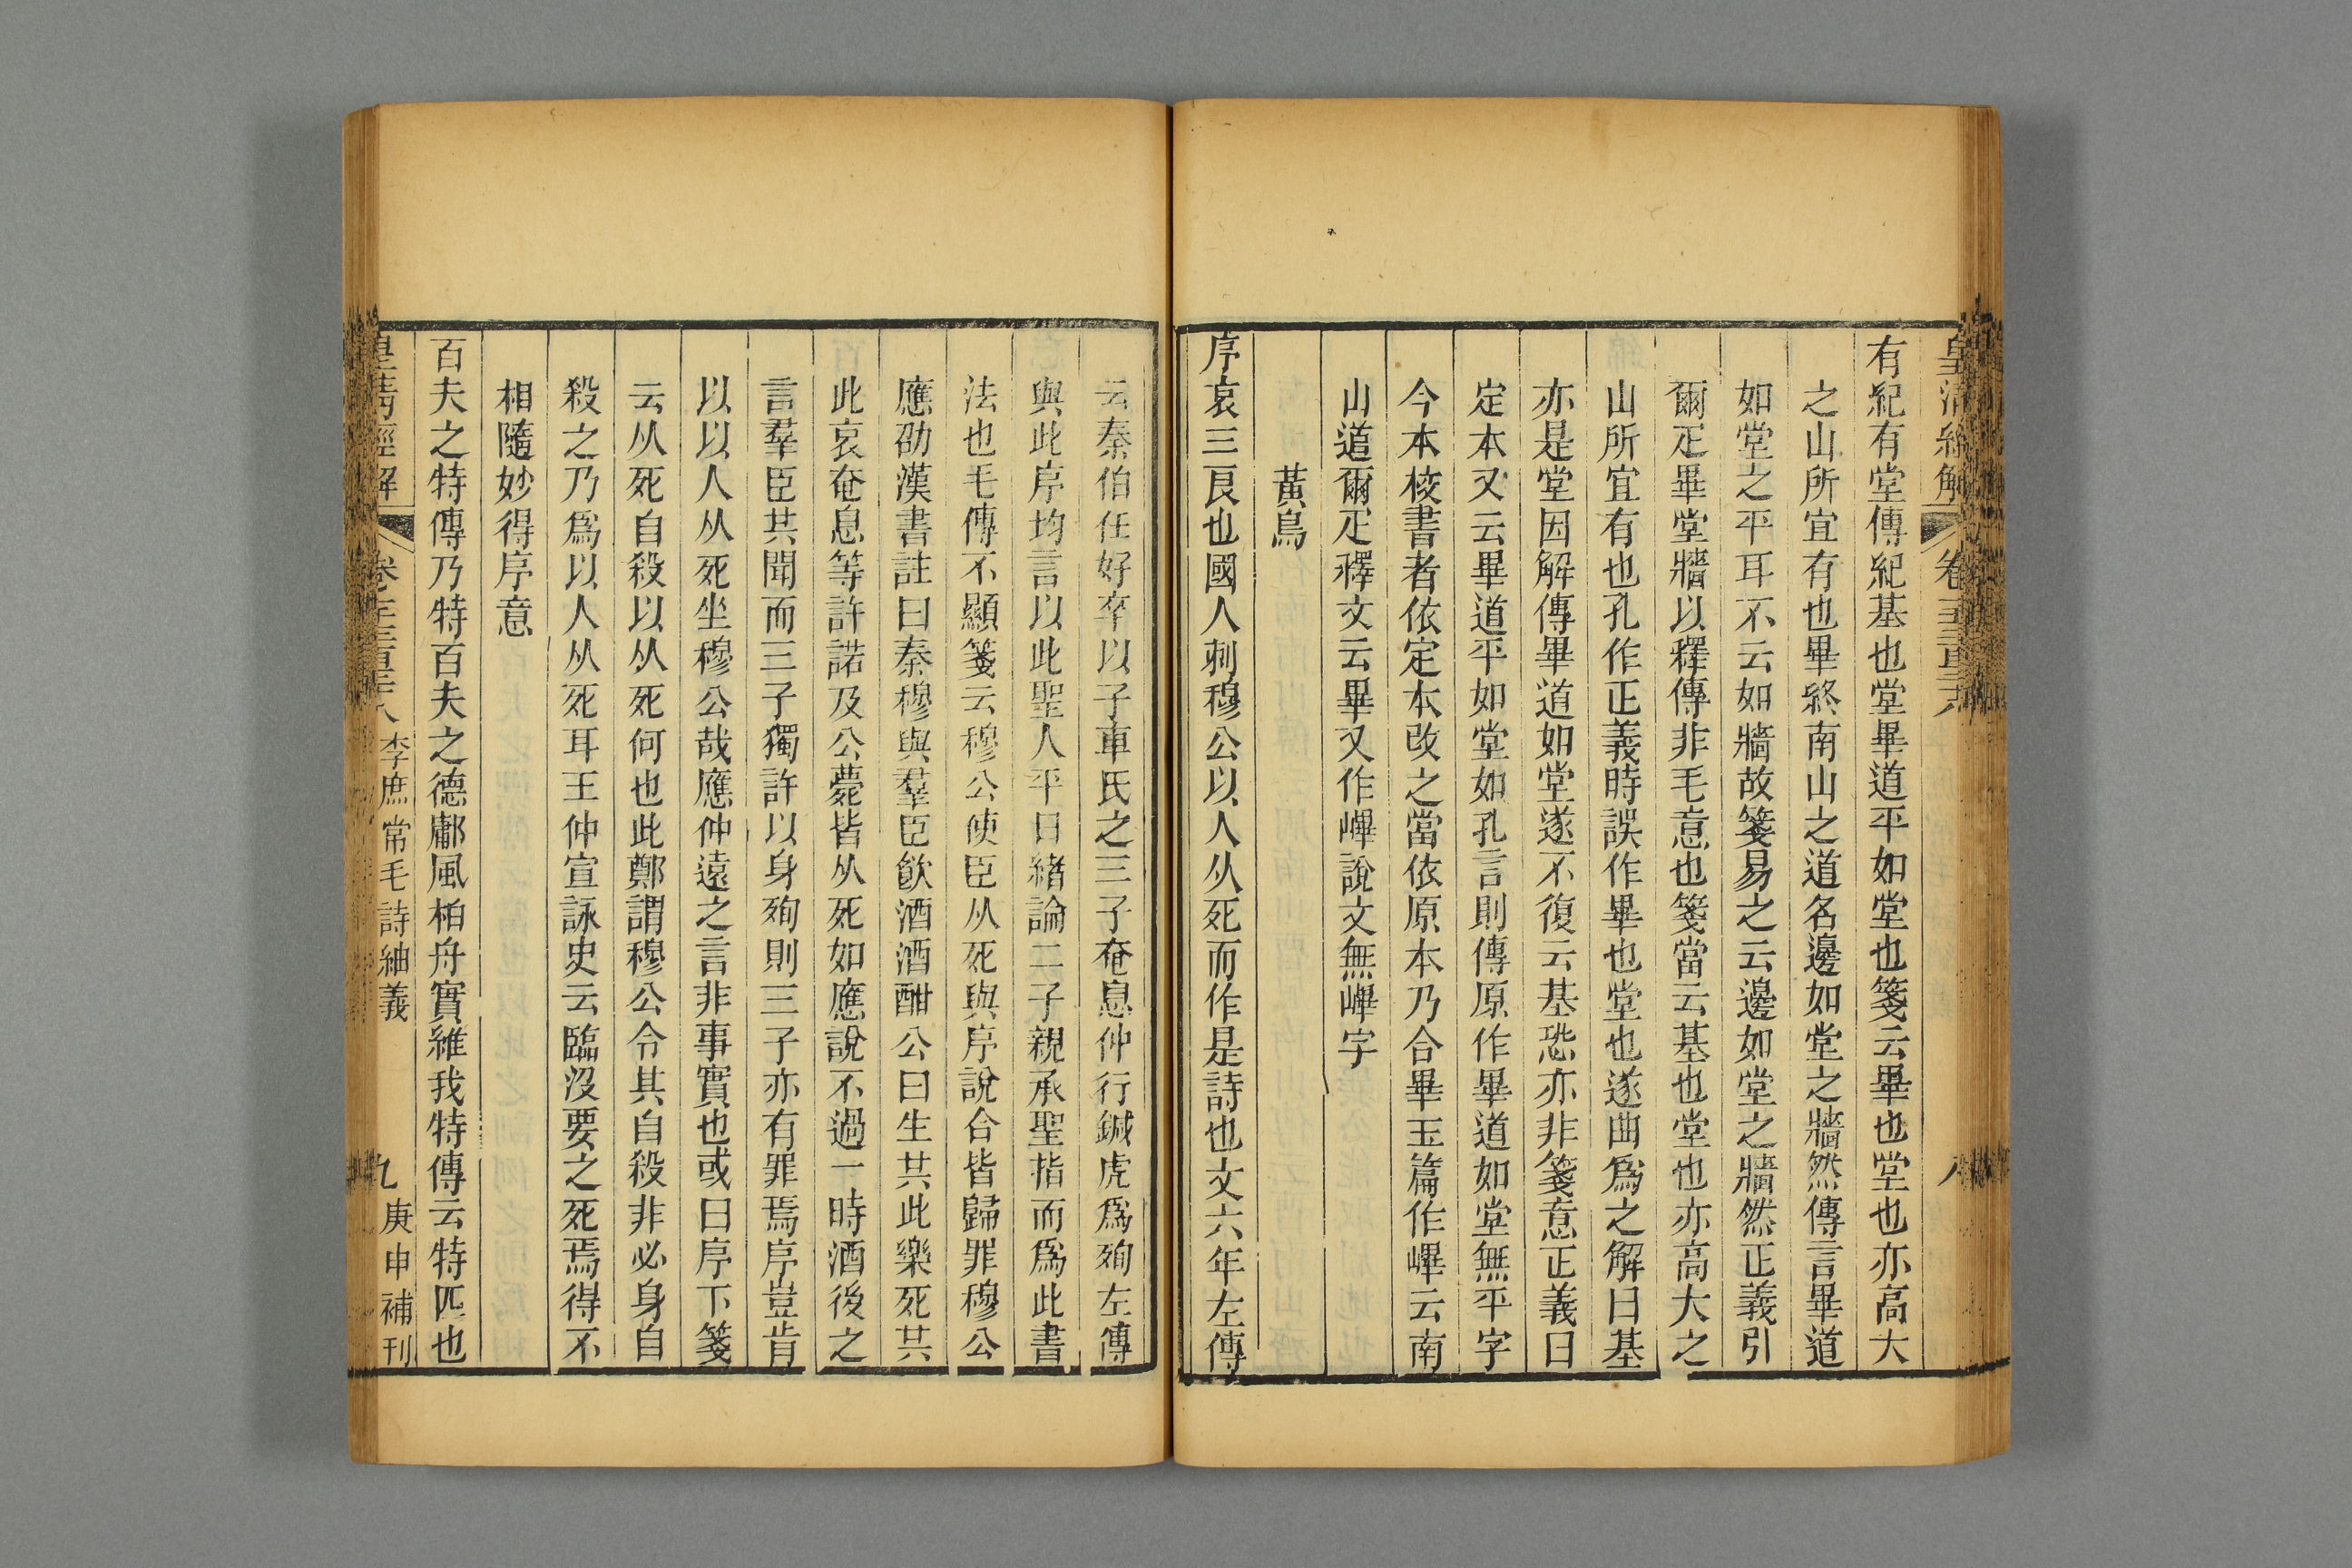 皇清經解 卷
八
有紀有堂傳紀基也堂畢道平如堂也箋云畢也堂也亦高大
之山所宜有也畢終南山之道名邊如堂之牆然傳言畢道
如堂之平耳不云如牆故箋易之云邊如堂之牆然正義引
爾疋畢堂牆以釋傳非毛意也箋當云基也堂也亦高大之
山所宜有也孔作正義時誤作畢也堂也遂曲爲之解曰基
亦是堂因解傳畢道如堂遂不復云基恐亦非箋意正義曰
定本又云畢道平如堂如孔言則傳原作畢道如堂無平字
今本校書者依定本改之當依原本乃合畢玉篇作㟀云南
山道爾疋釋文云畢又作㟀說文無㟀字
黃鳥
序哀三良也國人刺穆公以人从死而作是詩也文六年左傳
云秦伯任好卒以子車氏之三子奄息仲行鍼虎爲殉左傳
與此序均言以此聖人平日緒論二子親承聖指而爲此書
法也毛傳不顯箋云穆公使臣从死與序說合皆歸罪穆公
應劭漢書註曰秦穆與羣臣飲酒酒酣公曰生共此樂死共
此哀奄息等許諾及公薨皆从死如應說不過一時酒後之
言羣臣共聞而三子獨許以身殉則三子亦有罪焉序豈肯
以以人从死坐穆公哉應仲遠之言非事實也或曰序下箋
云从死自殺以从死何也此鄭謂穆公令其自殺非必身自
殺之乃爲以人从死耳王仲宣詠史云臨沒要之死焉得不
相隨妙得序意
百夫之特傳乃特百夫之德鄘風柏舟實維我特傳云特匹也
皇清經解 卷 李庶常毛詩紬義
九 庚申補刊